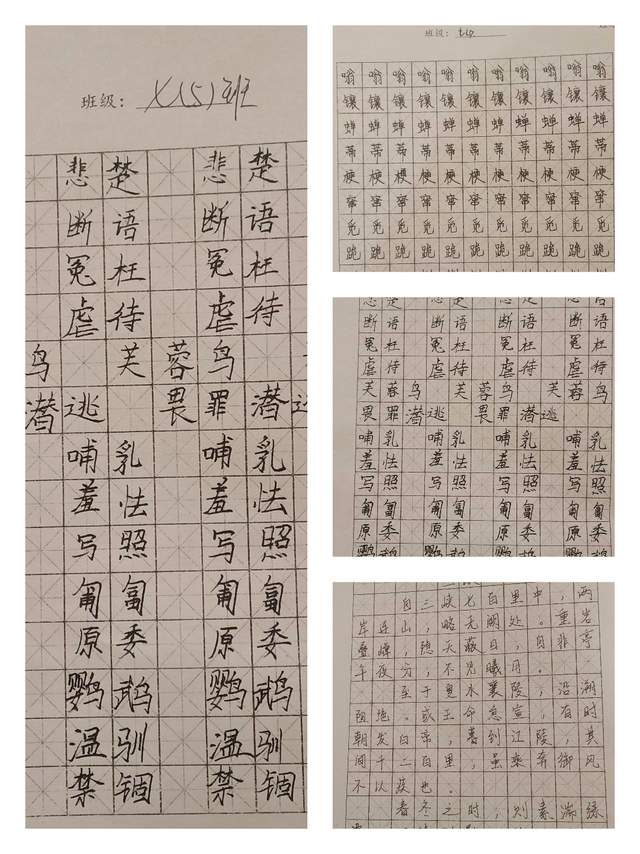 班级：X(5)班
悲楚 悲楚
断语 断语
冤枉 冤枉
虐待 虐待
鸟 芙蓉鸟
潜逃 畏罪潜逃
哺乳 哺乳
羞怯 羞怯
写照 写照
匍匐 匍匐
原委 原委
鹦鹉 鹦鹉
温驯 温驯
禁锢 禁锢
班级：
嗡嗡嗡嗡嗡嗡嗡嗡嗡嗡
镶镶镶镶镶镶镶镶镶镶
蝉蝉蝉蝉蝉蝉蝉蝉蝉蝉
蒂蒂蒂蒂蒂蒂蒂蒂蒂蒂
梗梗梗梗梗梗梗梗梗梗
窜窜窜窜窜窜窜窜窜窜
觅觅觅觅觅觅觅觅觅觅
跪跪跪跪跪跪跪跪跪跪
悲楚 悲楚 悲楚 悲楚
断语 断语 断语 断语
冤枉 冤枉 冤枉 冤枉
虐待 虐待 虐待 虐待
芙蓉鸟 芙蓉鸟 芙蓉鸟
畏罪潜逃 畏罪潜逃
哺乳 哺乳 哺乳 哺乳
羞怯 羞怯 羞怯 羞怯
写照 写照 写照 写照
匍匐 匍匐 匍匐 匍匐
原委 原委 原委 原委
鹦鹉 鹦鹉 鹦鹉 鹦鹉
自三峡七百里中，两
岸连山，略无阙处。重岩
叠嶂，隐天蔽日，自非亭
午夜分，不见曦月。
至于夏水襄陵，沿溯
阻绝。或王命急宣，有时
朝发白帝，暮到江陵，其
间千二百里，虽乘奔御风
不以疾也。
春冬之时，则素湍绿